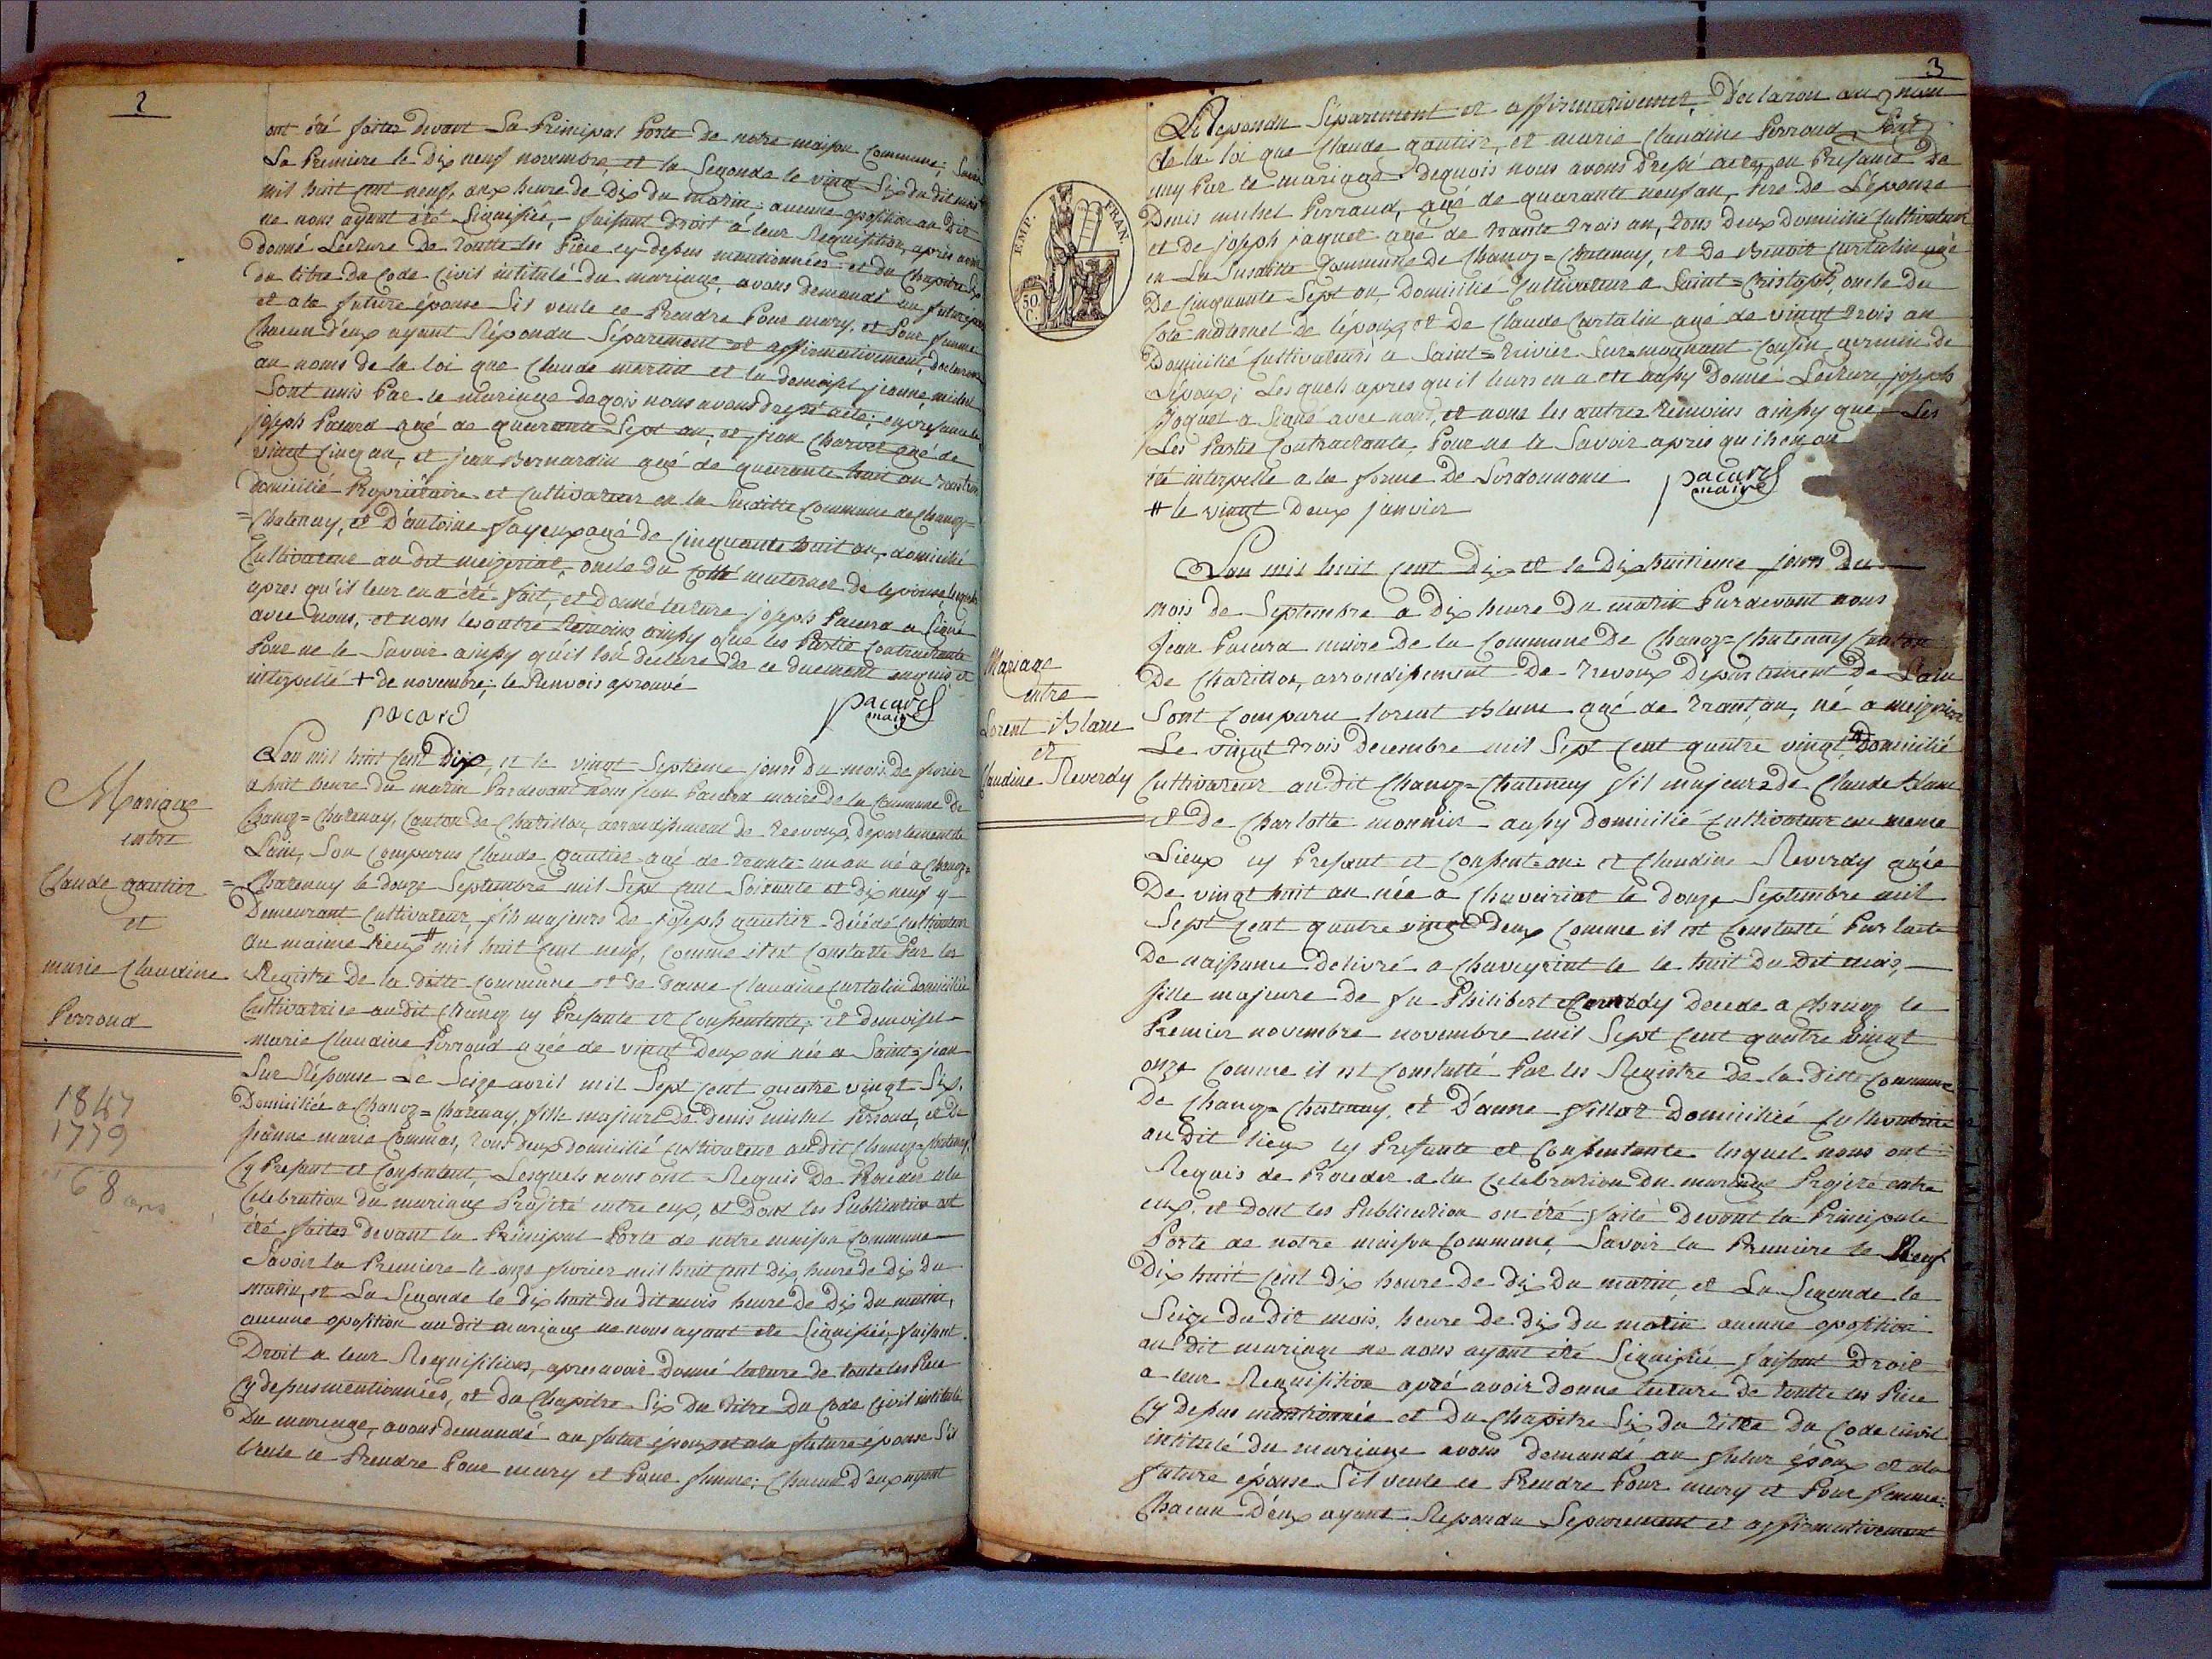 2
ont été faites devant La Principal Porte de notre maison Commune;
La Premiere le Dix neuf novembre, et la Segonde le vingt Six du dit mois
mil huit cent neuf, aux heure de Dix du matin; aucune oposition au Dit
ne nous ayant été Signifiée, faisant Droit a leur Requisition, apres avoir
donné Lecture De toutte les Piece cy depus mantionnées et du Chapitre Six
du titre du Code Civil intitulé du mariage, avons demandé au futur epoux
et a la future épouse S'il veule ce Prendre Pour mary, et Pour femme
Chacun d'eux ayant Répondu Séparement et affirmativement, declarons
au noms de la loi que Claude martin et la demoisel jeanne michel
Sont unis Par le mariage dequoi nous avons dressé acte; en presance de
joseph Pacard agé de quarante Sept an, et jean Charvet agé de
vingt Cinq an, et jean Bernardin agé de quarante huit an tous trois
domicilié Propriétaire et Cultivateur en la Suditte Commune de Chanoz=
=Chatenay, et D'antoine fayeux agé de Cinquante huit an, domicilié
Cultivateur au dit meizeriat, oncle du Cotté maternel de l'epouse, lesquels
apres qu'il leur en a été fait, et Donné lecture joseph Pacard a Signé
avec nous, et nom les autre temoins ainsy que les Partie Contractante
Pour ne le Savoir ainsy qu'il l'on declare de ce duement enquis et
interpellé + de novembre; le Renvois aprouvé
pacard
pacard
maire
Mariage
entre
Claude gautier
et
marie Claudine
Perroud
1847
1779
68 ans
Lan mil huit Cent Dix, et le vingt Septieme jours Du mois de fevrier
a huit heure du matin Pardevant nous jean Pacard maire de la Commune De
Chanoz=Chatenay, Canton de Chatillon, arrondissement de Trevoux, departement de
Lain, Son Comparus Claude gautier agé de trante un an né a Chanoz=
=Chatenay le douze Septembre mil Sept Cent Soixante et dix neuf y
Demeurant Cultivateur, fils majeurs de joseph gautier Décédé Cultivateur
au maime Lieux # mil huit Cent neuf, Comme il est Constatté Par les
Registre de la ditte Commune et de dame Claudine Curtalin domicilié
Cultivatrice audit Chanoz cy Presante et Consentente; et demoisel
marie Claudine Perroud agée de vingt Deux an née a Saint=jean
Sur Réysouse Le Seize avril mil Sept Cent quatre vingt Six.
Domiciliée a Chanoz=Chatenay, fille majeure de Denis michel Perroud, et De
jeanne marie Commas, tous deux domicilié Cultivateur audit Chanoz=chatenay,
Cy Presant et Consentent, Lesquels nous ont Requis De Proceder a la
Celebration du mariage Projeté entre eux, et Dont les Publication ont
été faites devant la Principal Porte de notre maison Commune
Savoir la Premiere le onze fevrier mil huit Cent Dix, heure de dix du
matin, et La Segonde le dix huit du dit mois heure de Dix Du matin,
aucune oposition audit mariage ne nous ayant été Signifiée, faisant
Droit a leur Requisitions, apres avoir Donné lecture de toute les Piece
Cy depus mentionnées, et du Chapitre Six du titre du Code Civil intitulé
Du mariage, avons demandé au futur époux et a la future épouse S'il
veule ce Prendre Pour mary et Pour femme; Chacun D'eux ayant
3
EMP. FRAN.
50 C.
Répondu Séparement et affirmativement, Déclaron au nom
de la loi que Claude gautier, et marie Claudine Perroud Sont
uny Par le mariage dequois nous avons dressé acte, en Presance De
Denis michel Perraud, agé de quarante neuf an, Pere De L'épouse
et de joseph jaquet agé de trante trois an, tous Deux Domicilié Cultivateur
en La Susditte Commune De Chanoz=Chatenay, et De Benoit Curtalin agé
De Cinquante Sept an, Domicilié Cultivateur a Saint=Cristoph, oncle du
Coté maternel de lépoux, et De Claude Curtalin agé de vingt trois an
Domicilié Cultivateurs a Saint=trivier Sur=moignant Cousin germin de
Lépoux; Les quels apres qu'il leurs en a été aussy Donné Lecture, joseph
joquet a Signé avec nous, et nom les autres temoins ainsy que Les
Les Partie Contractante, Pour ne le Savoir apres qu'ils en on
été interpelle a la forme de Lordonnance
pacard
maire
# le vingt Deux janvier
Mariage
entre
Lorent Blanc
et
Claudine Reverdy
Lan mil huit Cent Dix et le Dix huitieme jours Du
mois de Septembre a dix heure Du matin Pardevant nous
jean Pacard maire de la Commune De Chanoz=Chatenay Canton
De Chatillon, arrondissement De Trevoux Departement De Lain
Sont Comparu lorent Blanc agé de trant, an, né a meizeriat
Le vingt trois decembre mil Sept Cent quatre vingt # Domicilié
Cultivateur au dit Chanoz=Chatenay fil majeurs de Claude Blanc
et De Charlotte monnier aussy Domicilié Cultivateur au meme
Lieux cy Presant et Consent an et Claudine Reverdy agée
De vingt huit an née a Chaveiriat le douze Septembre mil
Sept Cent quatre vingt deux Comme il est Constatté Par lacte
De naissance delivré a Chaveyriat le le huit Du dit mois,
fille majeure de fu Philibert Reverdy decede a Chanoz le
Premier novembre novembre mil Sept Cent quatre vingt
onze Comme il est Constatté Par les Registre de la ditte Commune
De Chanoz=Chatenay, et D'anne fillot Domiciliéé Cultivatrice
au dit lieux cy Presante et Consentante lesquel nous ont
Requis de Proceder a la Celebration du mariage Projeté entre
eux, et dont les Publication on été faite Devant la Principale
Porte de notre maison Commune, Savoir la Premiere le Neuf
Dix huit Cent Dix heure de dix du matin, et La Segonde le
Seize du dit mois, heure De dix du matin aucune oposition
au dit mariage ne nous ayant été Signifiée faisant Droit
a leur Requisition apré avoir donne lecture de toutte les Piece
Cy depus mantionnée et Du Chapitre Six du titre du Code Civil
intitulé du mariage avons demandé au futur époux et a la
future épouse S'il veule ce Prendre Pour mary et Pour femme:
Chacun D'eux ayant Repondu Separement et affirmativement